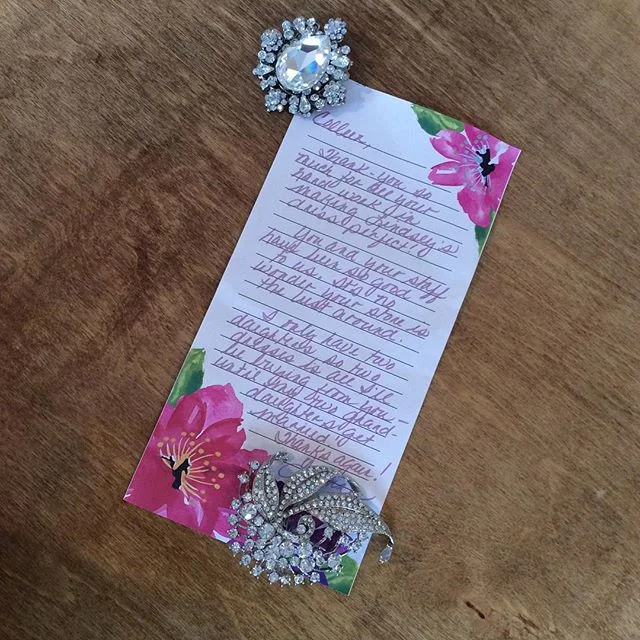 Colleen,
Thank-you so
much for all your
hard work in
making Lindsey's
dress perfect!!
You and your staff
have been so good
to us. It's no
wonder your store is
the best around.
I only have two
daughters so
to be the
be buying from you -
until your grand-
daughters get
married
Thanks Again!